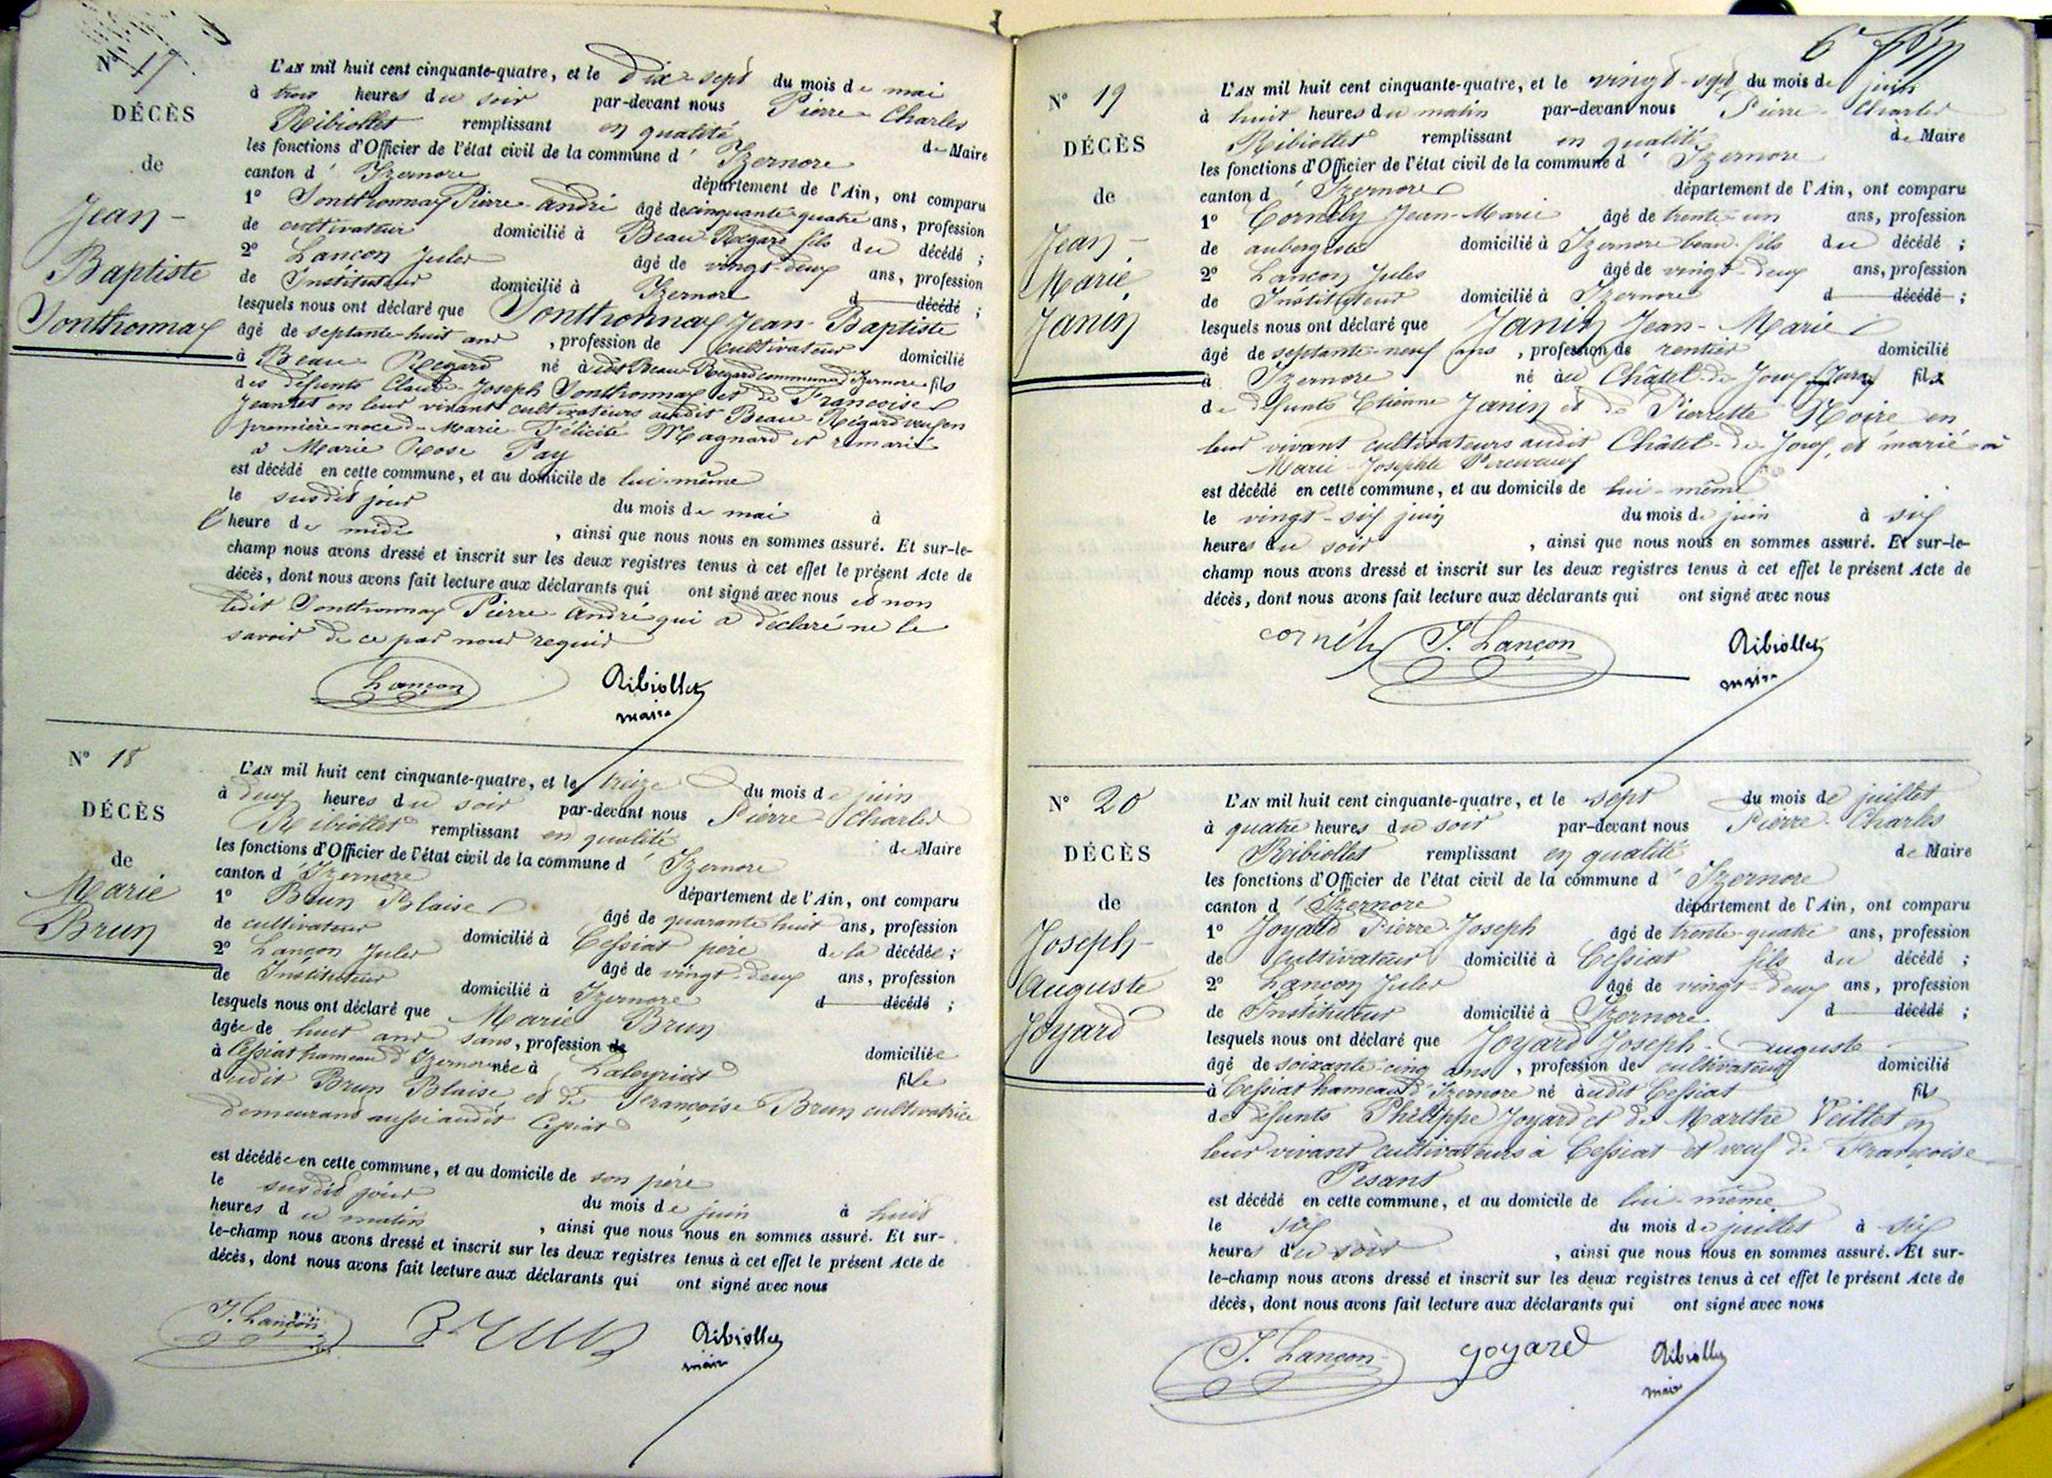 Nº 17
DÉCÈS
de
Jean-
Baptiste
Sonthonnax
L'AN mil huit cent cinquante-quatre, et le dix-sept du mois de mai
à trois heures du soir par-devant nous Pierre-Charles
Ribiollet remplissant en qualité de Maire
les fonctions d'Officier de l'état civil de la commune d'Izernore
canton d'Izernore département de l'Ain, ont comparu
1º Sonthonnax Pierre-André âgé de cinquante-quatre ans, profession
de cultivateur domicilié à Beau-Regard fils du décédé ;
2º Lançon Jules âgé de vingt-deux ans, profession
de Instituteur domicilié à Izernore d décédé ;
lesquels nous ont déclaré que Sonthonnax Jean-Baptiste
âgé de septante-huit ans, profession de cultivateur domicilié
à Beau-Regard né à dit Beau-Regard commune d'Izernore fils
des défunts Claude-Joseph Sonthonnax et de Françoise
Jeannet en leur vivant cultivateurs audit Beau-Régard veuf en
première noce de Marie Félicité Magnard et remarié
à Marie Rose Pay
est décédé en cette commune, et au domicile de lui-même
le susdit jour du mois de mai à
l'heure de midi, ainsi que nous nous en sommes assuré. Et sur-le-
champ nous avons dressé et inscrit sur les deux registres tenus à cet effet le présent Acte de
décès, dont nous avons fait lecture aux déclarants qui ont signé avec nous et non
ledit Sonthonnax Pierre-André qui a déclaré ne le
savoir de ce par nous requis
Lançon Ribiollet
maire
Nº 18
DÉCÈS
de
Marie
Brun
L'AN mil huit cent cinquante-quatre, et le treize du mois de juin
à deux heures du soir par-devant nous Pierre-Charles
Ribiollet remplissant en qualité de Maire
les fonctions d'Officier de l'état civil de la commune d'Izernore
canton d'Izernore département de l'Ain, ont comparu
1º Brun Blaise âgé de quarante-huit ans, profession
de cultivateur domicilié à Cessiat père de la décédée ;
2º Lançon Jules âgé de vingt-deux ans, profession
de Instituteur domicilié à Izernore d décédé ;
lesquels nous ont déclaré que Marie Brun
âgée de huit ans sans, profession de domiciliée
à Cessiat hameau d'Izernore née à Laleyriat fille
dudit Brun Blaise et de Françoise Brun cultivatrice
demeurant aussi audit Cessiat
est décédée en cette commune, et au domicile de son père
le susdit jour du mois de juin à huit
heures du matin, ainsi que nous nous en sommes assuré. Et sur-
le-champ nous avons dressé et inscrit sur les deux registres tenus à cet effet le présent Acte de
décès, dont nous avons fait lecture aux déclarants qui ont signé avec nous
J. Lançon Brun Ribiollet
maire
Nº 19
DÉCÈS
de
Jean-
Marie
Janin
L'AN mil huit cent cinquante-quatre, et le vingt-sept du mois de juin
à huit heures du matin par-devant nous Pierre-Charles
Ribiollet remplissant en qualité de Maire
les fonctions d'Officier de l'état civil de la commune d'Izernore
canton d'Izernore département de l'Ain, ont comparu
1º Cornély Jean-Marie âgé de trente-un ans, profession
de aubergiste domicilié à Izernore beau-fils du décédé ;
2º Lançon Jules âgé de vingt-deux ans, profession
de Instituteur domicilié à Izernore d décédé ;
lesquels nous ont déclaré que Janin Jean-Marie
âgé de septante-neuf ans, profession de rentier domicilié
à Izernore né au Châtel-de-Joux (Jura) fils
de défunts Etienne Janin et de Pierrette Noire en
leur vivant cultivateurs audit Châtel-de-Joux, et marié à
Marie-Josephte
est décédé en cette commune, et au domicile de lui-même
le vingt-six juin du mois de juin à six
heures du soir, ainsi que nous nous en sommes assuré. Et sur-le-
champ nous avons dressé et inscrit sur les deux registres tenus à cet effet le présent Acte de
décès, dont nous avons fait lecture aux déclarants qui ont signé avec nous
cornély J. Lançon Ribiollet
maire
Nº 20
DÉCÈS
de
Joseph-
Auguste
Joyard
L'AN mil huit cent cinquante-quatre, et le sept du mois de juillet
à quatre heures du soir par-devant nous Pierre-Charles
Ribiollet remplissant en qualité de Maire
les fonctions d'Officier de l'état civil de la commune d'Izernore
canton d'Izernore département de l'Ain, ont comparu
1º Joyard Pierre-Joseph âgé de trente-quatre ans, profession
de cultivateur domicilié à Cessiat fils du décédé ;
2º Lançon Jules âgé de vingt-deux ans, profession
de Instituteur domicilié à Izernore d décédé ;
lesquels nous ont déclaré que Joyard Joseph-Auguste
âgé de soixante-cinq ans, profession de cultivateur domicilié
à Cessiat hameau d'Izernore né audit Cessiat fils
de défunts Philippe Joyard et de Marthe Veillet en
leur vivant cultivateurs à Cessiat et veuf de Françoise
Pesant
est décédé en cette commune, et au domicile de lui-même
le six du mois de juillet à six
heures du soir, ainsi que nous nous en sommes assuré. Et sur-
le-champ nous avons dressé et inscrit sur les deux registres tenus à cet effet le présent Acte de
décès, dont nous avons fait lecture aux déclarants qui ont signé avec nous
J. Lançon joyard Ribiollet
maire